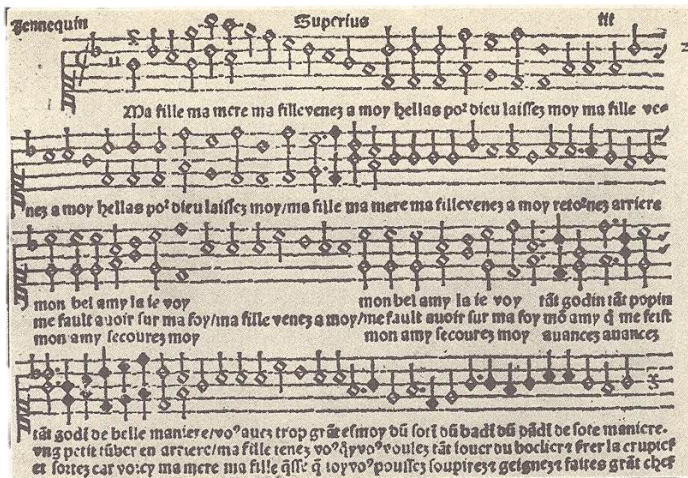 Jennequin Superius iii
Ma fille ma mere ma fille venez a moy hellas po² dieu laissez moy ma fille ve=
nez a moy hellas po² dieu laissez moy/ma fille ma mere ma fille venez a moy reto²nez arriere
mon bel amy la ie voy mon bel amy la ie voy tāt godin tāt popin
me fault avoir sur ma foy/ma fille venez a moy/me fault avoir sur ma foy mō amy q̄ me feist
mon amy secourez moy mon amy secourez moy avancez avancez
tāt godī de belle maniere/vo⁹ avez trop grāt esmoy dū sotī dū badī dū pādī de sote maniere.
ung petit tūber en arriere/ma fille tenez vo⁹ voulez tāt iouer du boclier
et sortez car voicy ma mere ma fille vo⁹ poussez soupirez geignez faites grāt chef